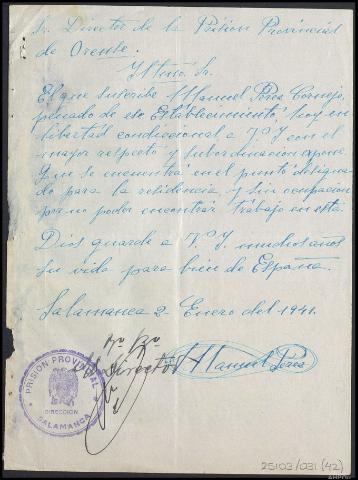 Sr. Director de la Prisión Provincial
de Orense.
Iltmo. Sr.
El que suscribe Manuel Pérez Cornejo,
penado de ese Establecimiento, hoy en
libertad condiccional a V.I. con el
mayor respecto y subordinación expone:
Que se encuentra en el punto designa-
do para la residencia y sin ocupacion
por no poder encontrar trabajo en esta.
Dios guarde a V.I. muchos años
su vida para bien de España.
Salamanca 2 Enero del 1941.
Vº Bº
El Director
Manuel Pérez
PRISIÓN PROVINCIAL
DIRECCIÓN
SALAMANCA
25103/031 (42)